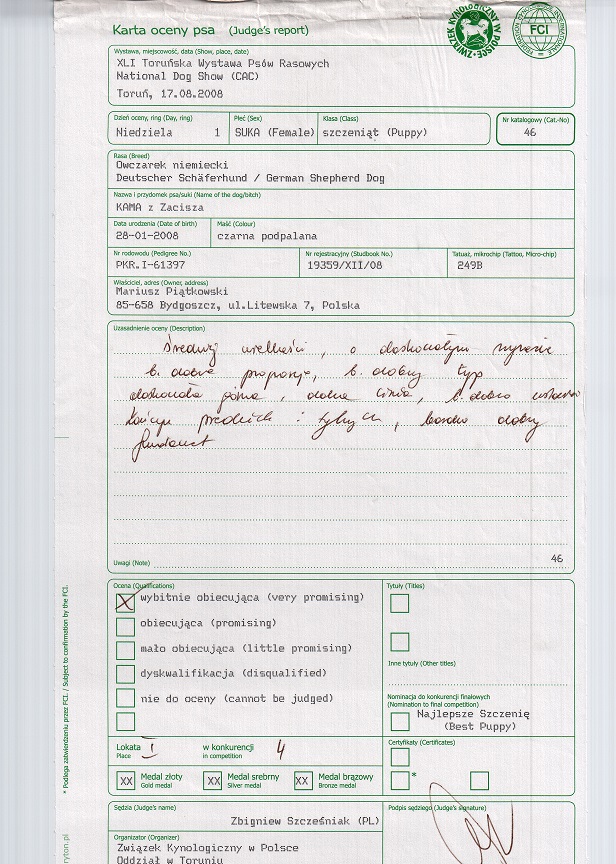 Karta oceny psa (Judge's report)
ZWIĄZEK KYNOLOGICZNY W POLSCE
FCI
Wystawa, miejscowość, data (Show, place, date)
XLI Toruńska Wystawa Psów Rasowych
National Dog Show (CAC)
Toruń, 17.08.2008
Dzień oceny, ring (Day, ring) Płeć (Sex) Klasa (Class) Nr katalogowy (Cat.-No)
Niedziela 1 SUKA (Female) szczeniąt (Puppy) 46
Rasa (Breed)
Owczarek niemiecki
Deutscher Schäferhund / German Shepherd Dog
Nazwa i przydomek psa/suki (Name of the dog/bitch)
KAMA z Zacisza
Data urodzenia (Date of birth) Maść (Colour)
28-01-2008 czarna podpalana
Nr rodowodu (Pedigree No.) Nr rejestracyjny (Studbook No.) Tatuaż, mikrochip (Tattoo, Micro-chip)
PKR.I-61397 19359/XII/08 249B
Właściciel, adres (Owner, address)
Mariusz Piątkowski
85-658 Bydgoszcz, ul.Litewska 7, Polska
Uzasadnienie oceny (Description)
średniej wielkości, o doskonałym wyrazie
b. dobre proporcje, b. dobry typ
doskonała górna, dolna linia, b. dobre
kończyn przednich i tylnych, bardzo dobry
Uwagi (Note) 46
Ocena (Qualifications) Tytuły (Titles)
X wybitnie obiecująca (very promising)
obiecująca (promising)
mało obiecująca (little promising)
dyskwalifikacja (disqualified) Inne tytuły (Other titles)
nie do oceny (cannot be judged) Nominacja do konkurencji finałowych
(Nomination to final competition)
Najlepsze Szczenię
(Best Puppy)
Lokata I w konkurencji 4 Certyfikaty (Certificates)
Place in competition
XX Medal złoty XX Medal srebrny XX Medal brązowy *
Gold medal Silver medal Bronze medal
* Podlega zatwierdzeniu przez FCI. / Subject to confirmation by the FCI.
Sędzia (Judge's name) Podpis sędziego (Judge's signature)
Zbigniew Szcześniak (PL)
Organizator (Organizer)
Związek Kynologiczny w Polsce
Oddział w Toruniu
ryton.pl